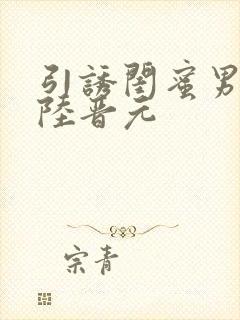 引誘閨蜜男
陸晋元
宗青